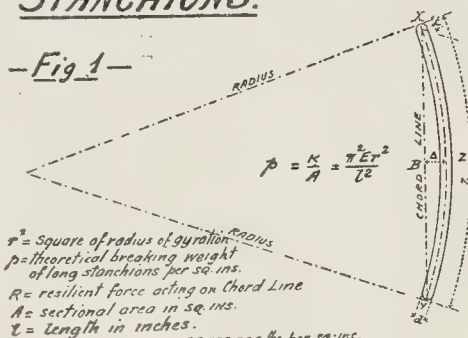 STANCHIONS.
- Fig 1 -
X
RADIUS
p = K/A = π²Er²/l²
CHORD LINE
B
Δ
Z
RADIUS
r² = Square of radius of gyration
p = theoretical breaking weight
of long stanchions per sq. ins.
R = resilient force acting on Chord Line
A = sectional area in sq. ins.
l = length in inches.